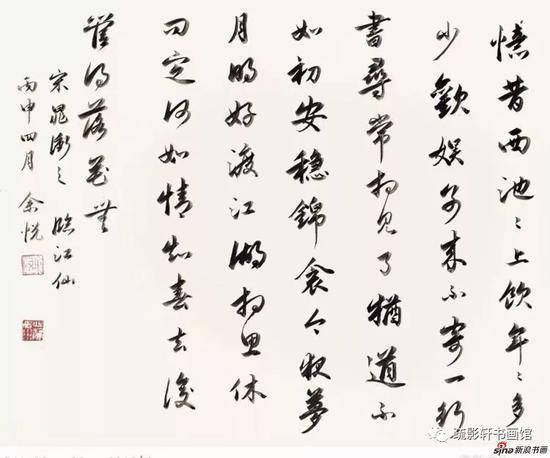 憶昔西池〻上飲年〻多
少歡娛別來不寄一行
書尋常相見了猶道不
如初安穩錦衾今夜夢
月明好渡江湖相思休
問定何如情知春去後
管得落花無
宋晁衝之 臨江仙
丙申四月 余悅
疏影轩书画馆
sina新浪书画